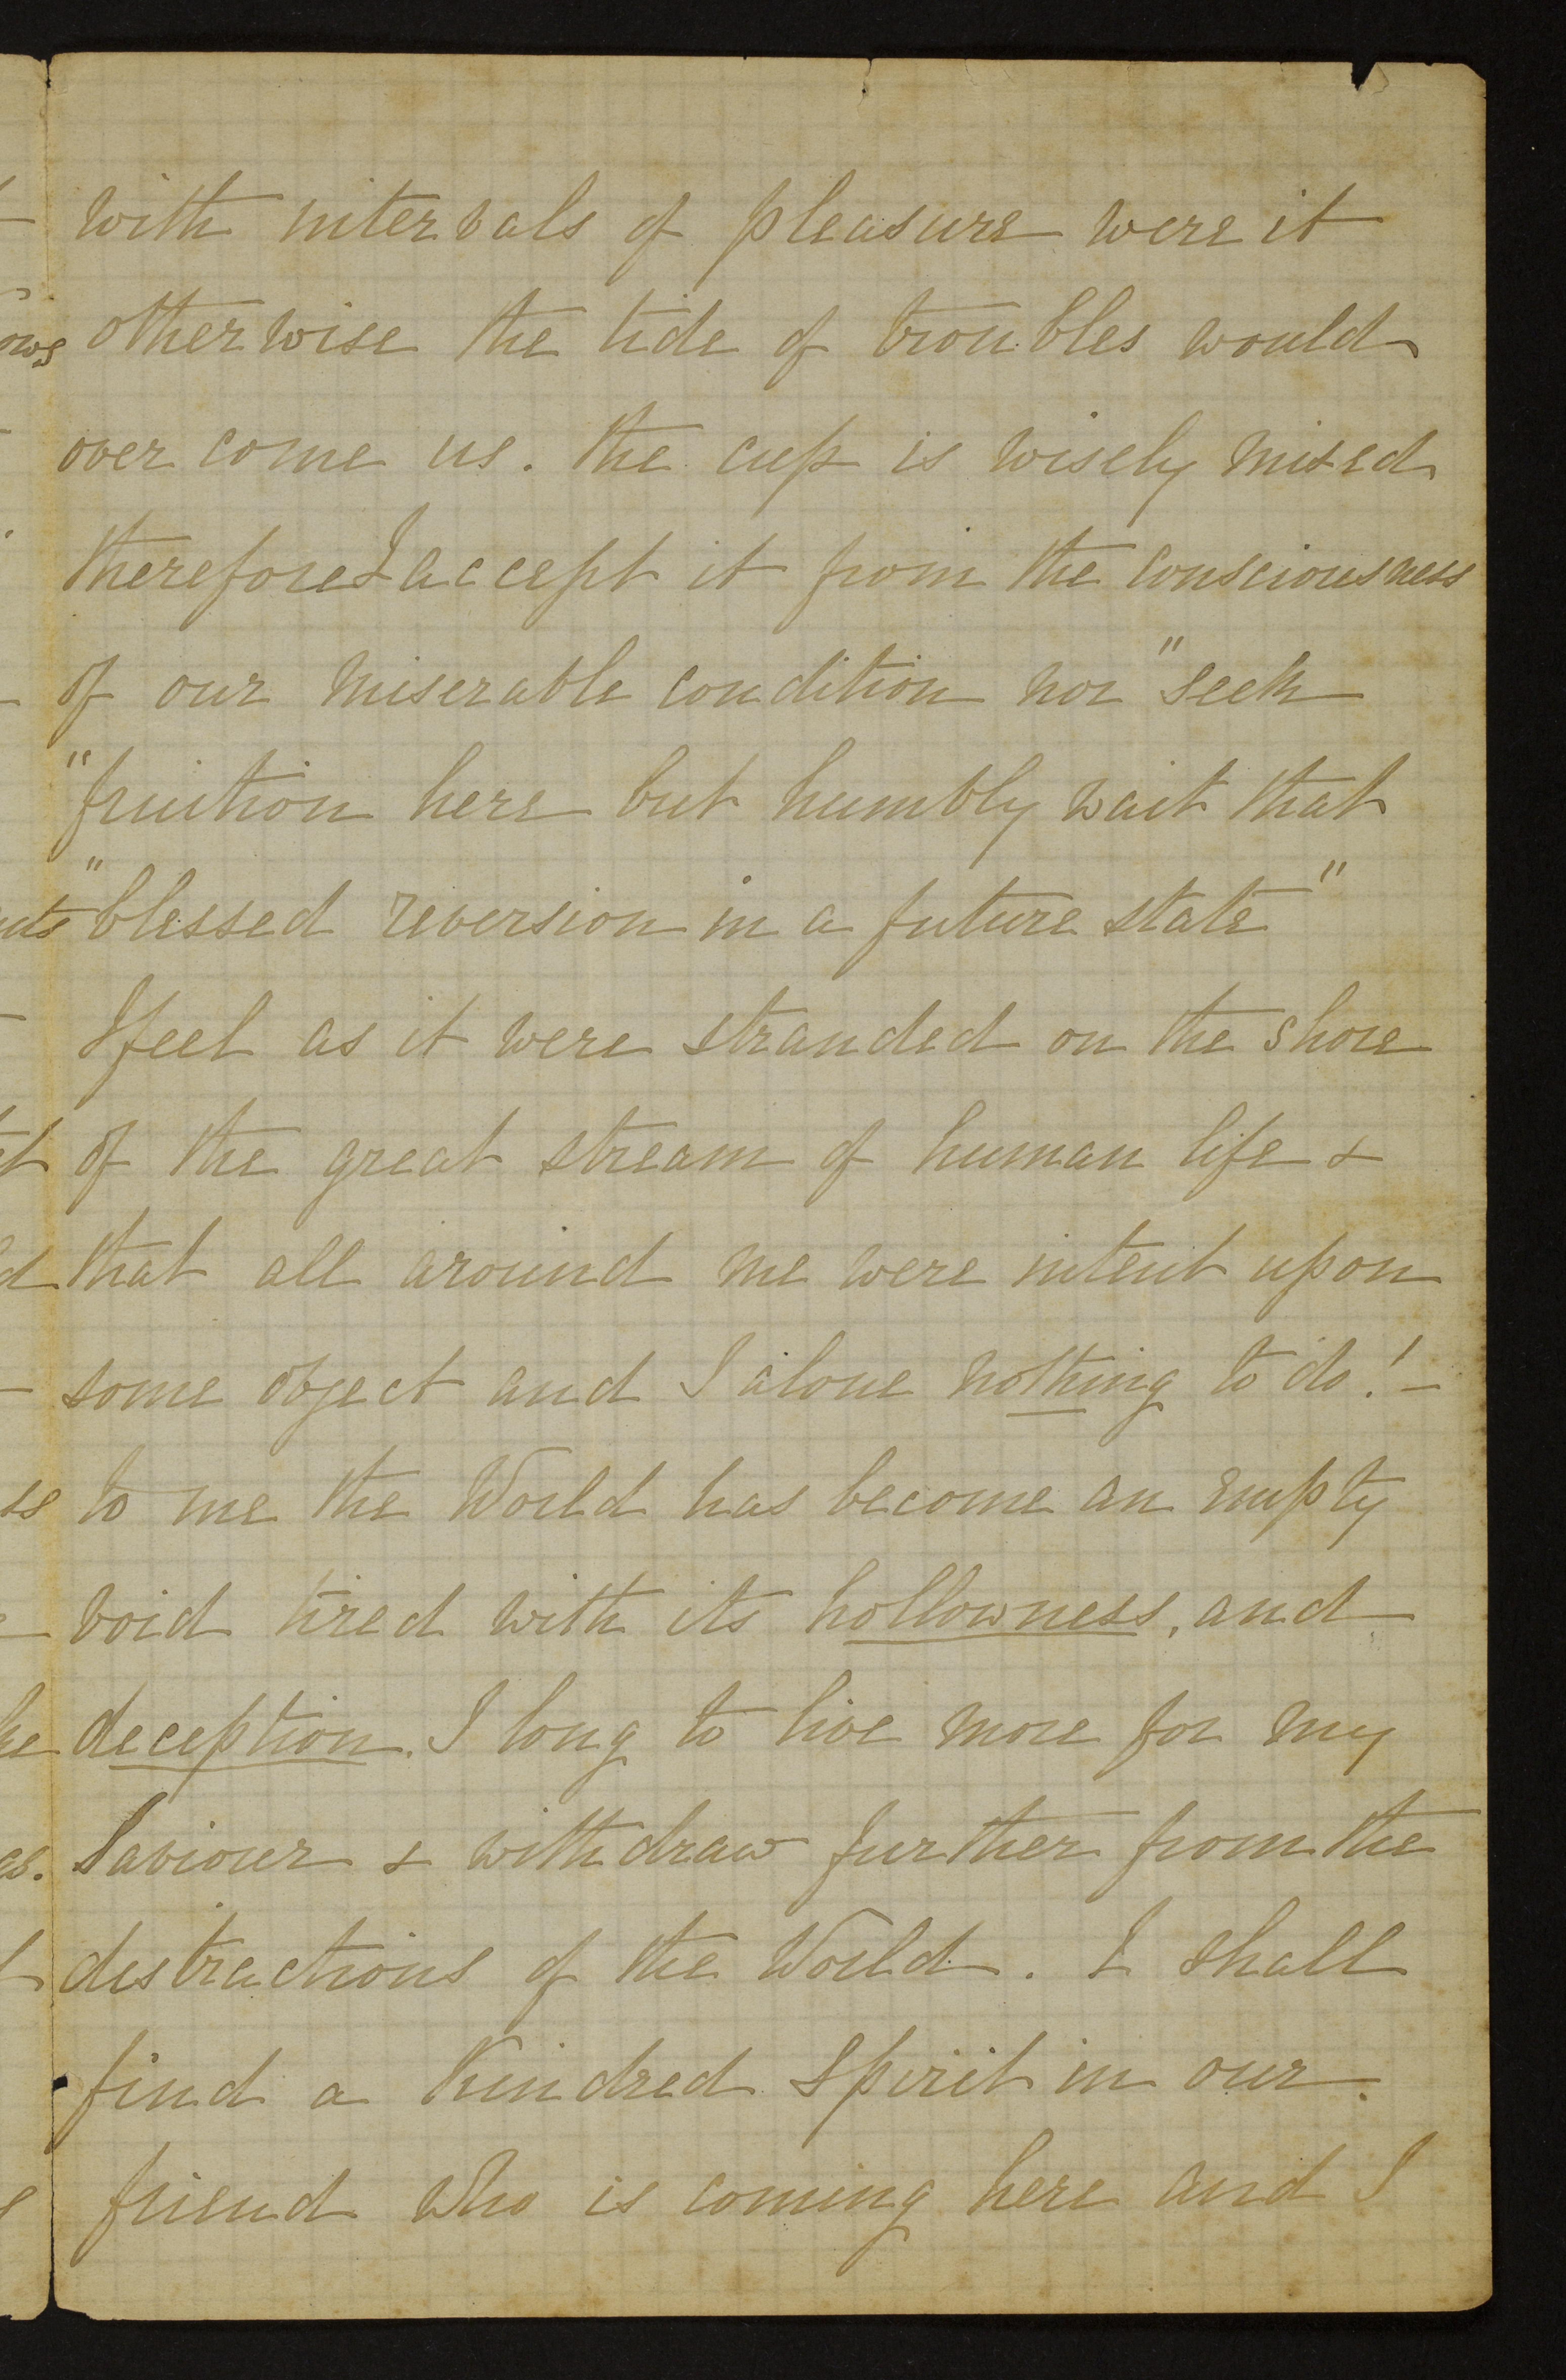 with intervals of pleasure were it
otherwise the tide of troubles would
over come us. the cup is wisely mixed
therefore I accept it from the consciousness
of our miserable condition nor "seek
"fruition here but humbly wait that
"blessed reversion in a future state"
I feel as it were stranded on the shore
of the great stream of human life &
that all around me were intent upon
some object and I alone nothing to do! -
to me the World has become an empty
void tired with its hollowness, and
deception. I long to live more for my
Saviour & withdraw further from the
distractions of the World. I shall
find a Kindred Spirit in our
friend who is coming here and I